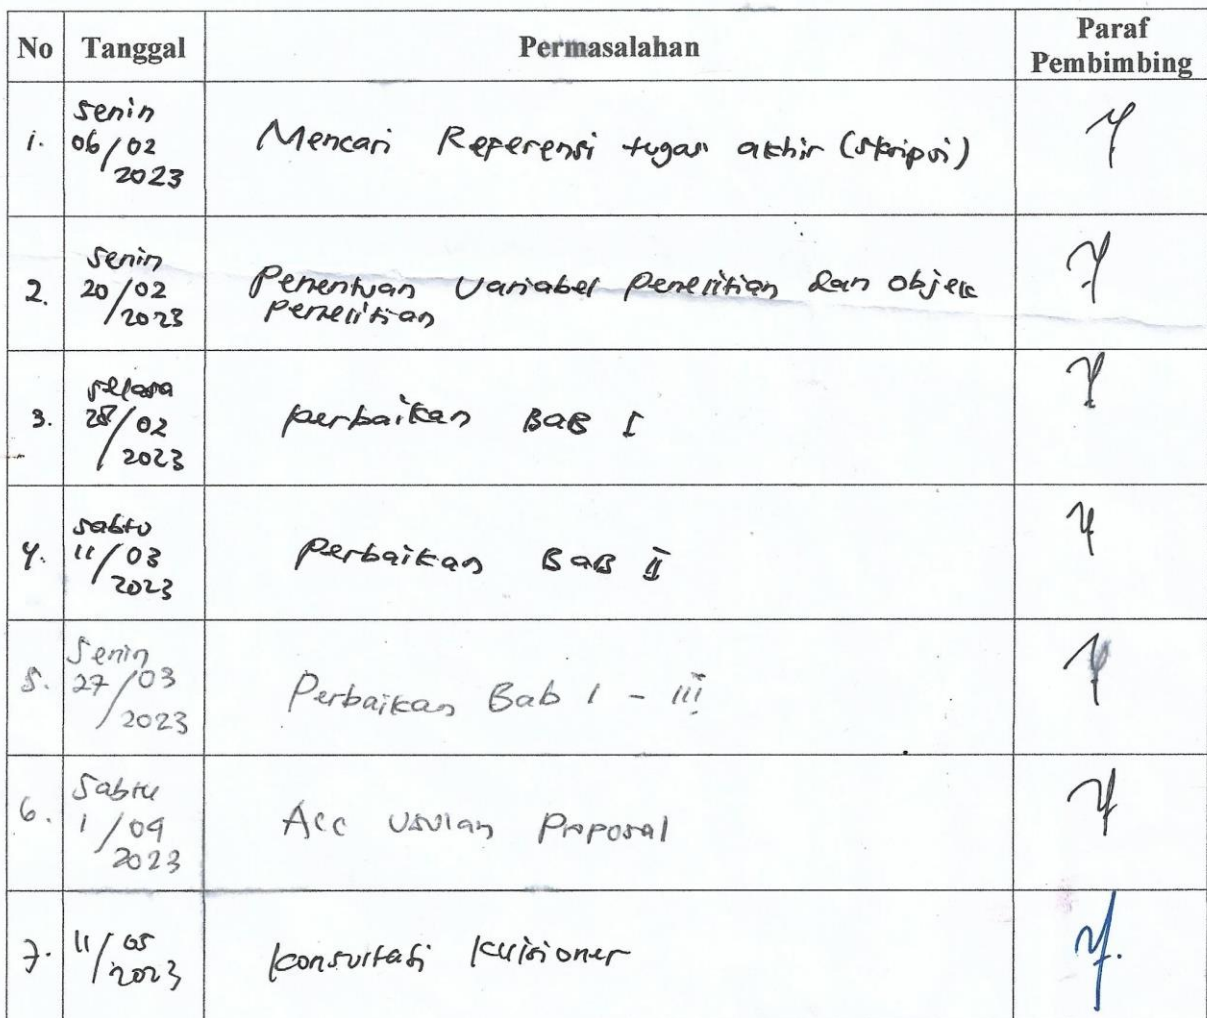 No Tanggal Permasalahan Paraf
Pembimbing
1. Senin
06/02
2023
Mencari Referensi tugas akhir (skripsi)
2. Senin
20/02
2023
Penentuan Variabel penelitian dan objek
penelitian
3. selasa
28/02
2023
perbaikan BAB I
4. sabtu
11/03
2023
perbaikan BAB II
5. Senin
27/03
2023
Perbaikan Bab I - III
6. Sabtu
1/04
2023
Acc Usulan Proposal
7. 11/05
2023
konsultasi kuisioner